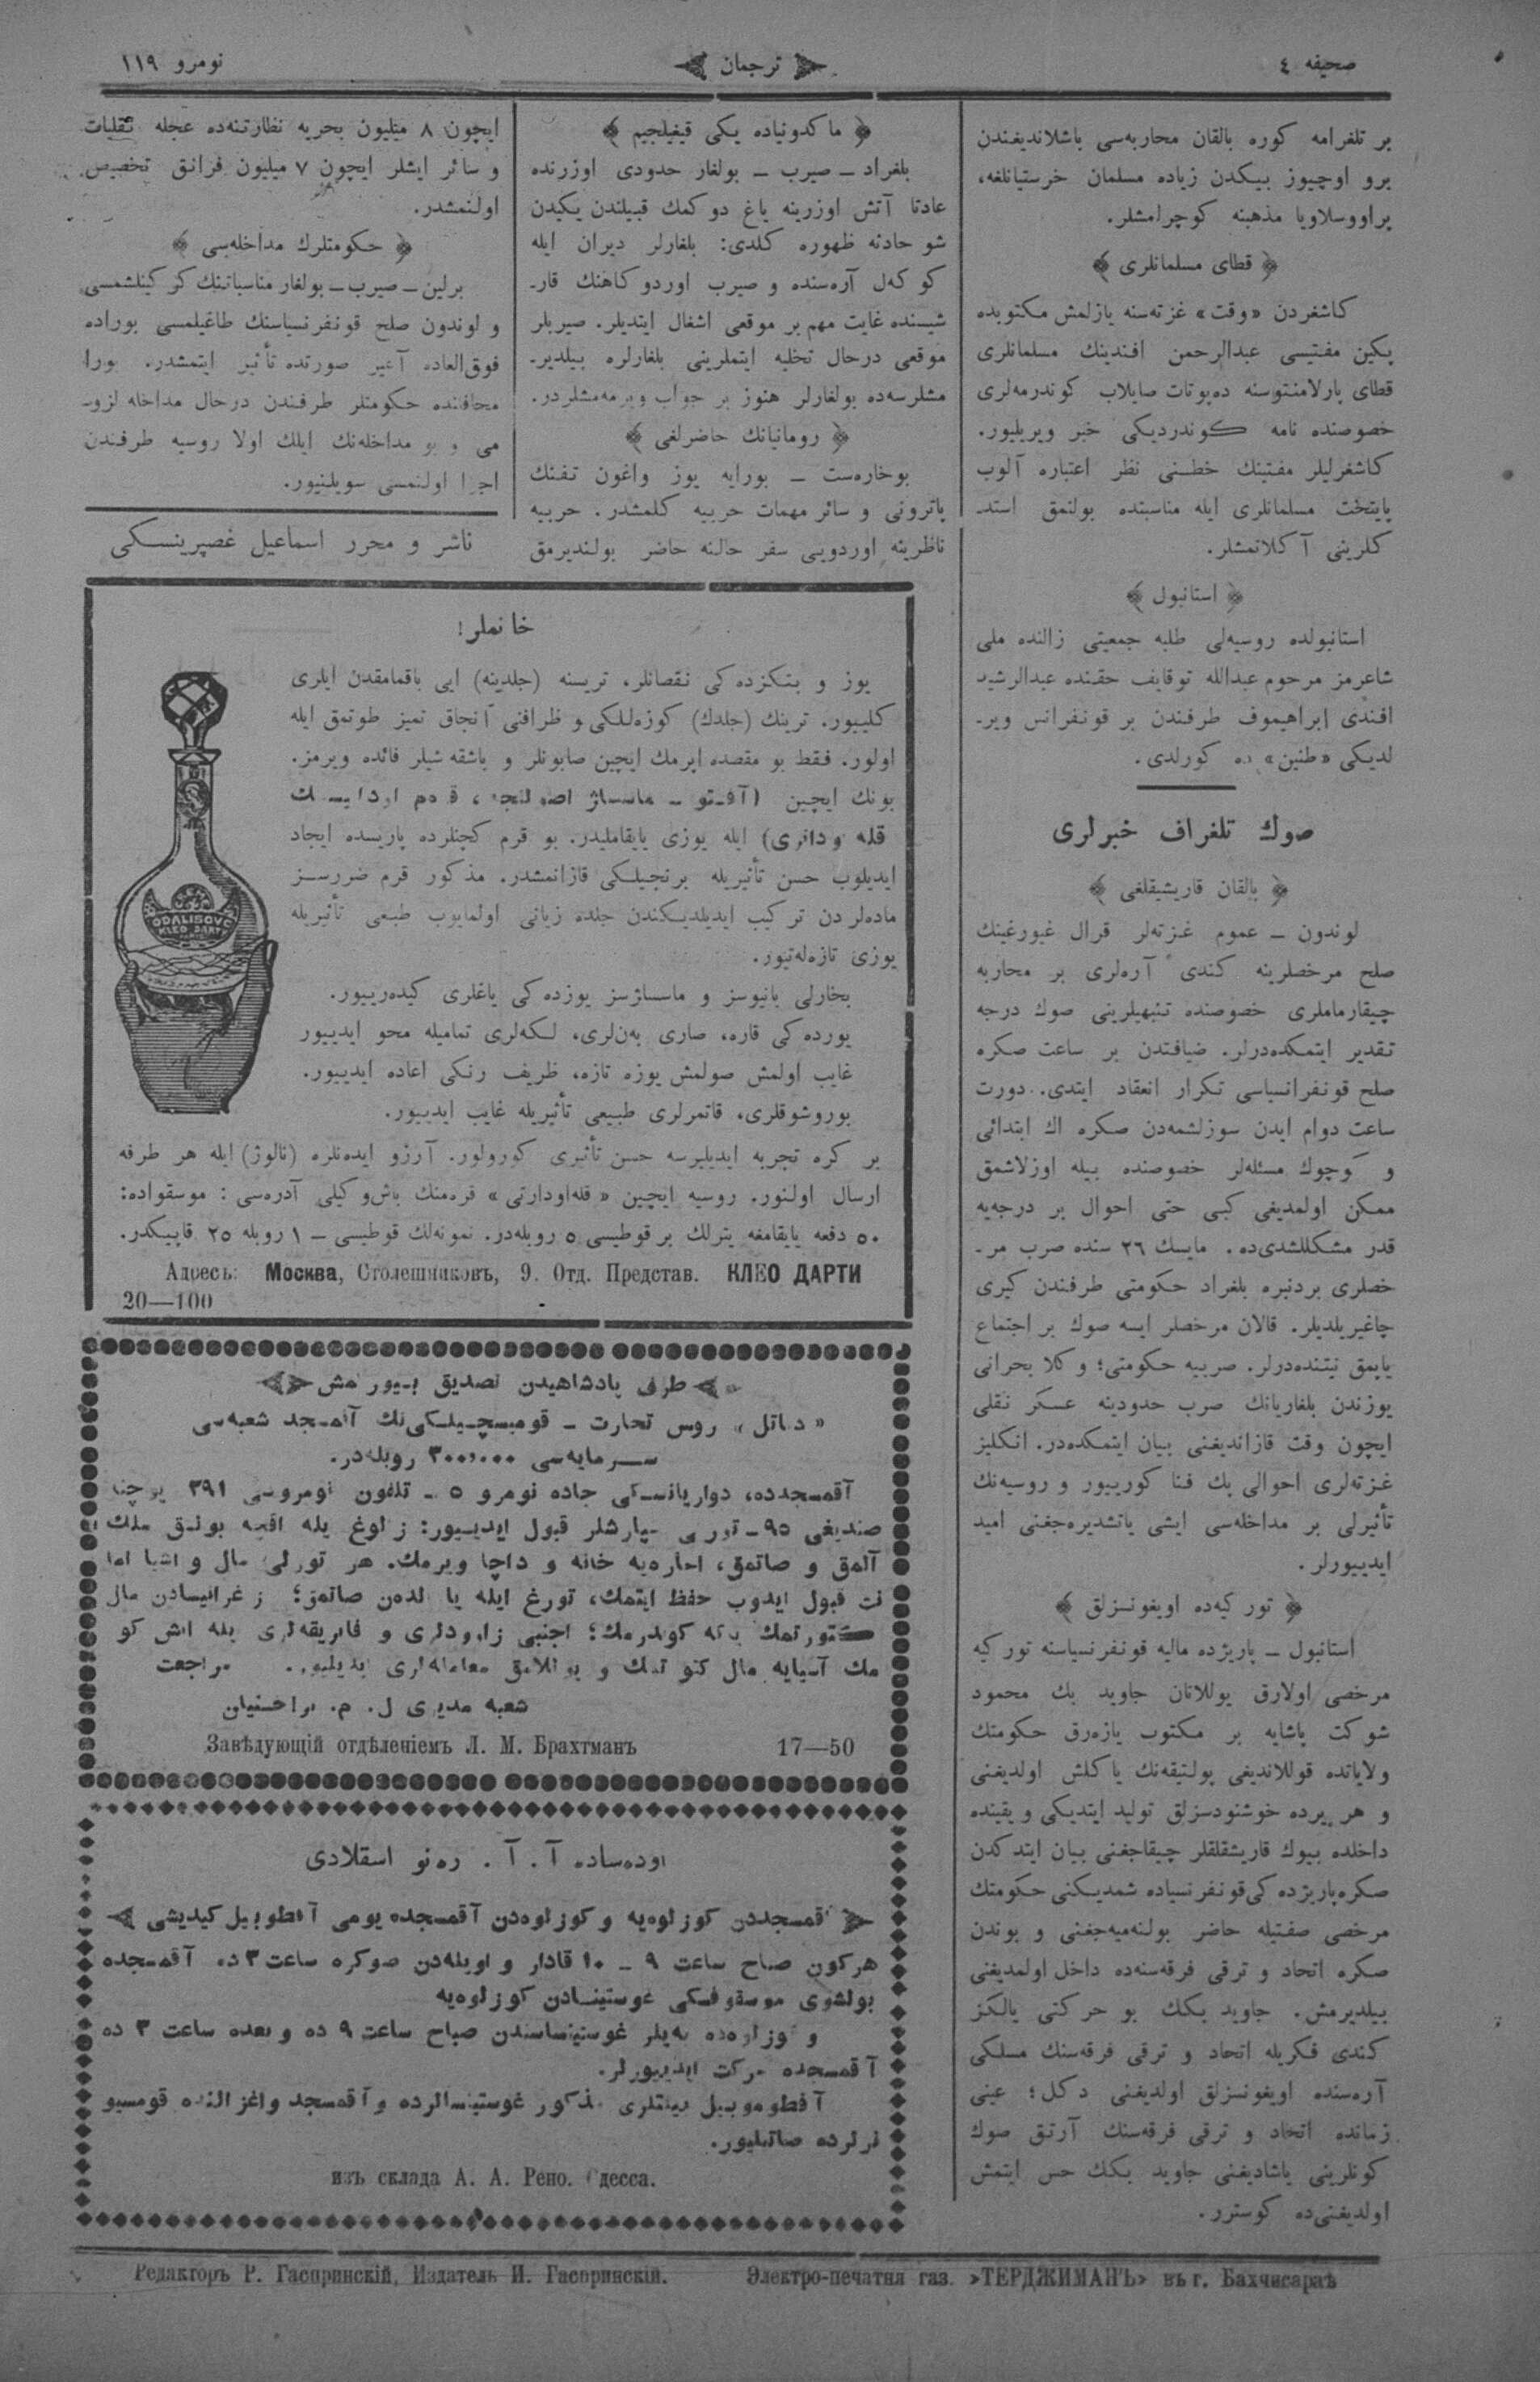 صحيفه ٤
ترجمان
نومرو ١١٩
بر تلغرامه كوره بالقان محاربه‌سى باشلانديغندن
برو اوچيوز بيكدن زياده مسلمان خرستيانلغه،
پراووسلاويا مذهبنه كوچرلمشلر.
﴿ قطاى مسلمانلرى ﴾
كاشغردن «وقت» غزته‌سنه يازلمش مكتوبده
پكين مفتيسى عبدالرحمن افندينك مسلمانلرى
قطاى پارلامنتوسنه ده‌پوتات صايلاب كوندرمه‌لرى
خصوصنده نامه كوندرديكى خبر ويريليور.
كاشغرليلر مفتينك خطنى نظر اعتباره آلوب
پايتخت مسلمانلرى ايله مناسبتده بولنمق استد-
كلرينى آكلاتمشلر.
﴿ استانبول ﴾
استانبولده روسيه‌لى طلبه جمعيتى زالنده ملى
شاعرمز مرحوم عبدالله توقايف حقنده عبدالرشيد
افندى ابراهيموف طرفندن بر قونفرانس وير-
لديكى «طنين» ده كورلدى.
صوك تلغراف خبرلرى
﴿ بالقان قاريشيقلغى ﴾
لوندون — عموم غزته‌لر قرال غيورغينك
صلح مرخصلرينه كندى آره‌لرى بر محاربه
چيقارماملرى خصوصنده تنبهيلرينى صوك درجه
تقدير ايتمكده‌درلر. ضيافتدن بر ساعت صكره
صلح قونفرانسياسى تكرار انعقاد ايتدى. دورت
ساعت دوام ايدن سوزلشمه‌دن صكره اك ابتدائى
و كوچوك مسئله‌لر خصوصنده بيله اوزلاشمق
ممكن اولمديغى كبى حتى احوال بر درجه‌يه
قدر مشكللشدى‌ده. مايسك ٢٦ سنده صرب مر-
خصلرى بردنبره بلغراد حكومتى طرفندن كيرى
چاغيريلديلر. قالان مرخصلر ايسه صوك بر اجتماع
ياپمق نيتنده‌درلر. صربيه حكومتى؛ وكلا بحرانى
يوزندن بلغاريانك صرب حدودينه عسكر نقلى
ايچون وقت قازانديغنى بيان ايتمكده‌در. انكليز
غزته‌لرى احوالى پك فنا كورييور و روسيه‌نك
تأثيرلى بر مداخله‌سى ايشى ياتشديره‌جغنى اميد
ايدييورلر.
﴿ توركيه‌ده اويغونسزلق ﴾
استانبول — پاريژده ماليه قونفرنسياسنه توركيه
مرخصى اولارق يوللانان جاويد بك محمود
شوكت پاشايه بر مكتوب يازه‌رق حكومتك
ولاياتده قوللانديغى پولتيقه‌نك ياكلش اولديغنى
و هر يرده خوشنودسزلق توليد ايتديكى و يقينده
داخلده بيوك قاريشقلقلر چيقاجغنى بيان ايتدكدن
صكره پاريژده‌كى قونفرنسياده شمديكنى حكومتك
مرخصى صفتيله حاضر بولنه‌ميه‌جغنى و بوندن
صكره اتحاد و ترقى فرقه‌سنه‌ده داخل اولمديغنى
بيلديرمش. جاويد بكك بو حركتى يالكز
كندى فكريله اتحاد و ترقى فرقه‌سنك مسلكى
آره‌سنده اويغونسزلق اولديغنى دكل؛ عينى
زمانده اتحاد و ترقى فرقه‌سنك آرتق صوك
كونلرينى ياشاديغنى جاويد بكك حس ايتمش
اولديغنى‌ده كوسترر.
﴿ ماكدونياده يكى قيغيلجيم ﴾
بلغراد — صيرب — بولغار حدودى اوزرنده
عادتا آتش اوزرينه ياغ دوكمك قبيلندن يكيدن
شو حادثه ظهوره كلدى: بلغارلر ديران ايله
كوكه‌ل آره‌سنده و صيرب اوردوكاهنك قار-
شيسنده غايت مهم بر موقعى اشغال ايتديلر. صيربلر
موقعى درحال تخليه ايتملرينى بلغارلره بيلدير-
مشلرسه‌ده بولغارلر هنوز بر جواب ويرمه‌مشلردر.
﴿ رومانيانك حاضرلغى ﴾
بوخاره‌ست — بورايه يوز واغون تفنك
پاترونى و سائر مهمات حربيه كلمشدر. حربيه
ناظرينه اوردويى سفر حالنه حاضر بولنديرمق
ايچون ٨ ميليون بحريه نظارتنه‌ده عجله نقليات
و سائر ايشلر ايچون ٧ ميليون فرانق تخصيص
اولنمشدر.
﴿ حكومتلرك مداخله‌سى ﴾
برلين — صيرب — بولغار مناسباتينك كركينلشمسى
و لوندون صلح قونفرنسياسنك طاغيلمسى بوراده
فوق‌العاده آغير صورتده تأثير ايتمشدر. بورا
محافلنده حكومتلر طرفندن درحال مداخله لزو-
مى و بو مداخله‌نك ايلك اولا روسيه طرفندن
اجرا اولنمسى سويلنيور.
ناشر و محرر اسماعيل غصپرينسكى
خانملر!
يوز و بتكزده‌كى نقصانلر، تريسنه (جلدينه) ايى باقمامقدن ايلرى
كلييور. ترينك (جلدك) كوزه‌للكى و ظرافنى آنجاق تميز طوتمق ايله
اولور. فقط بو مقصده ايرمك ايچين صابونلر و باشقه شيلر فائده ويرمز.
بونك ايچين
قله‌ودارتى) ايله يوزى يايقامليدر. بو قرم كجنلرده پاريسده ايجاد
ايديلوب حسن تأثيريله برنجيلكى قازانمشدر. مذكور قرم ضررسز
ماده‌لردن تركيب ايديلديكندن جلده زيانى اولمايوب طبعى تأثيريله
يوزى تازه‌له‌تيور.
بخارلى بانيوسز و ماسساژسز يوزده‌كى ياغلرى كيده‌رييور.
يورده‌كى قاره، صارى به‌ن‌لرى، لكه‌لرى تماميله محو ايدييور
غايب اولمش صولمش يوزه تازه، ظريف رنكى اعاده ايدييور.
بوروشوقلرى، قاتمرلرى طبيعى تأثيريله غايب ايدييور.
ODALISQVE
KLEO DARTI
بر كره تجربه ايديليرسه حسن تأثيرى كورولور. آرزو ايده‌نلره (نالوژ) ايله هر طرفه
ارسال اولنور. روسيه ايچين «قله‌اودارتى» قره‌منك باش‌وكيلى آدره‌سى: موسقواده:
٥٠ دفعه يايقامغه يترلك بر قوطيسى ٥ روبله‌در. نمونه‌لك قوطيسى — ١ روبله ٢٥ قاپيكدر.
Адресъ: Москва, Столешниковъ, 9. Отд. Представ. КЛЕО ДАРТИ
20—100
طرف پادشاهيدن تصديق بيورلمش
روس تجارت — آقمسجد شعبه‌سى
سرمايه‌سى ٣٠٠،٠٠٠ روبله‌در.
آقمسجدده، دواريانسكى جاده نومرو ٥ — تلفون نومروسى ٣٩١
آلمق و صاتمق، اجاره‌يه خانه و داچا ويرمك. هر تورلى مال و
قبول ايدوب حفظ ايتمك، تورغ ايله يا الدن صاتمق؛
شعبه مديرى ل. م. براخمان
Завѣдующій отдѣленіемъ Л. М. Брахтманъ
17—50
اوده‌ساده آ. آ. ره‌نو اسقلادى
آقمسجددن كوزلوه‌يه و كوزلوه‌دن آقمسجده يومى آفطوبيل كيديشى
هركون صباح ساعت ٩ — ١٠ قادار و اويله‌دن صوكره ساعت ٣ ده آقمسجده
بولشوى موسقوفسكى غوستينسادن كوزلوه‌يه
و كوزلوه‌ده به‌يلر غوستينساسندن صباح ساعت ٩ ده و بعده ساعت ٣ ده
آقمسجده حركت ايدييورلر.
آفطوموبيل بيلتلرى مذكور غوستينسالرده و آقمسجد واغزالنده قومسيو
نرلرده صاتيليور.
изъ склада А. А. Рено. Одесса.
Редакторъ Р. Гаспринскій, Издатель И. Гаспринскій.
Электро-печатня газ. »ТЕРДЖИМАНЪ» въ г. Бахчисараѣ